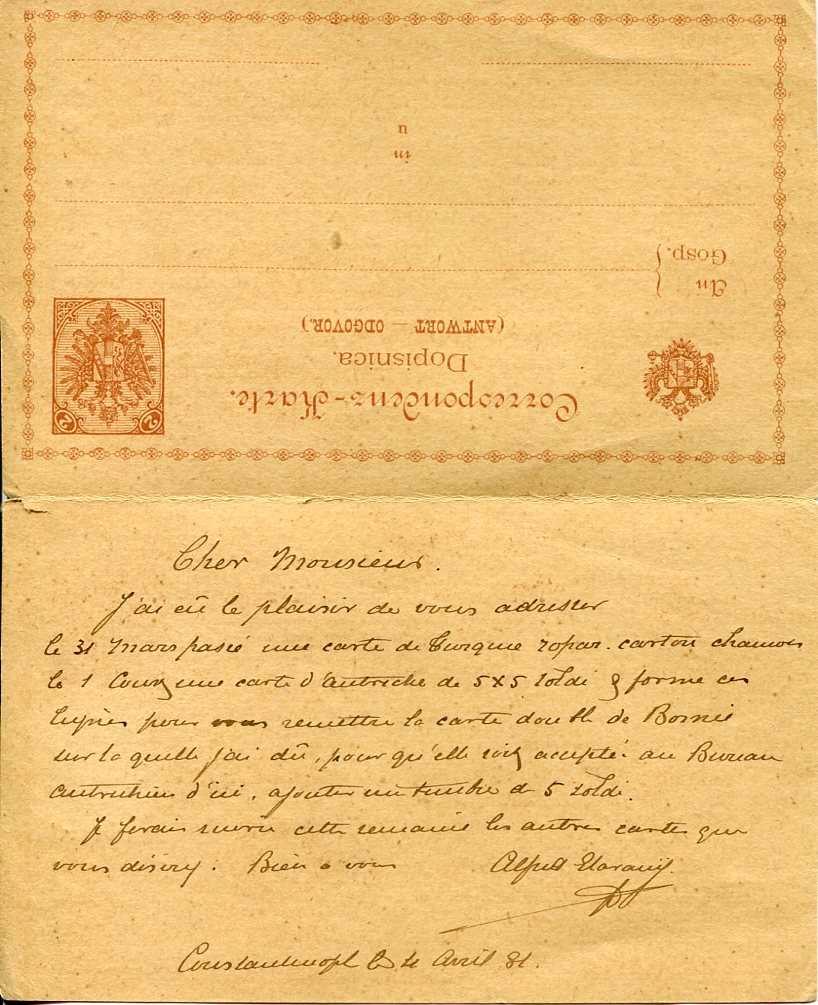 Correspondenz-Karte.
Dopisnica.
(ANTWORT — ODGOVOR.)
2 2
An
Gosp.
in
u
Cher Monsieur.
J'ai eû le plaisir de vous adresser
le 31 Mars passé une carte de Turquie 20 par. carton chamois
le 1 Cour^t une carte d'Autriche de 5X5 soldi & forme ces
lignes pour vous remettre la carte double de Bosnie
sur la quelle j'ai dû, pour qu'elle soit accepté au Bureau
autrichien d'ici, ajouter un timbre de 5 soldi.
Je ferais suivre cette semaine les autres cartes que
vous désirez. Bien à vous Alfred
Constantinople le 4 Avril 81.